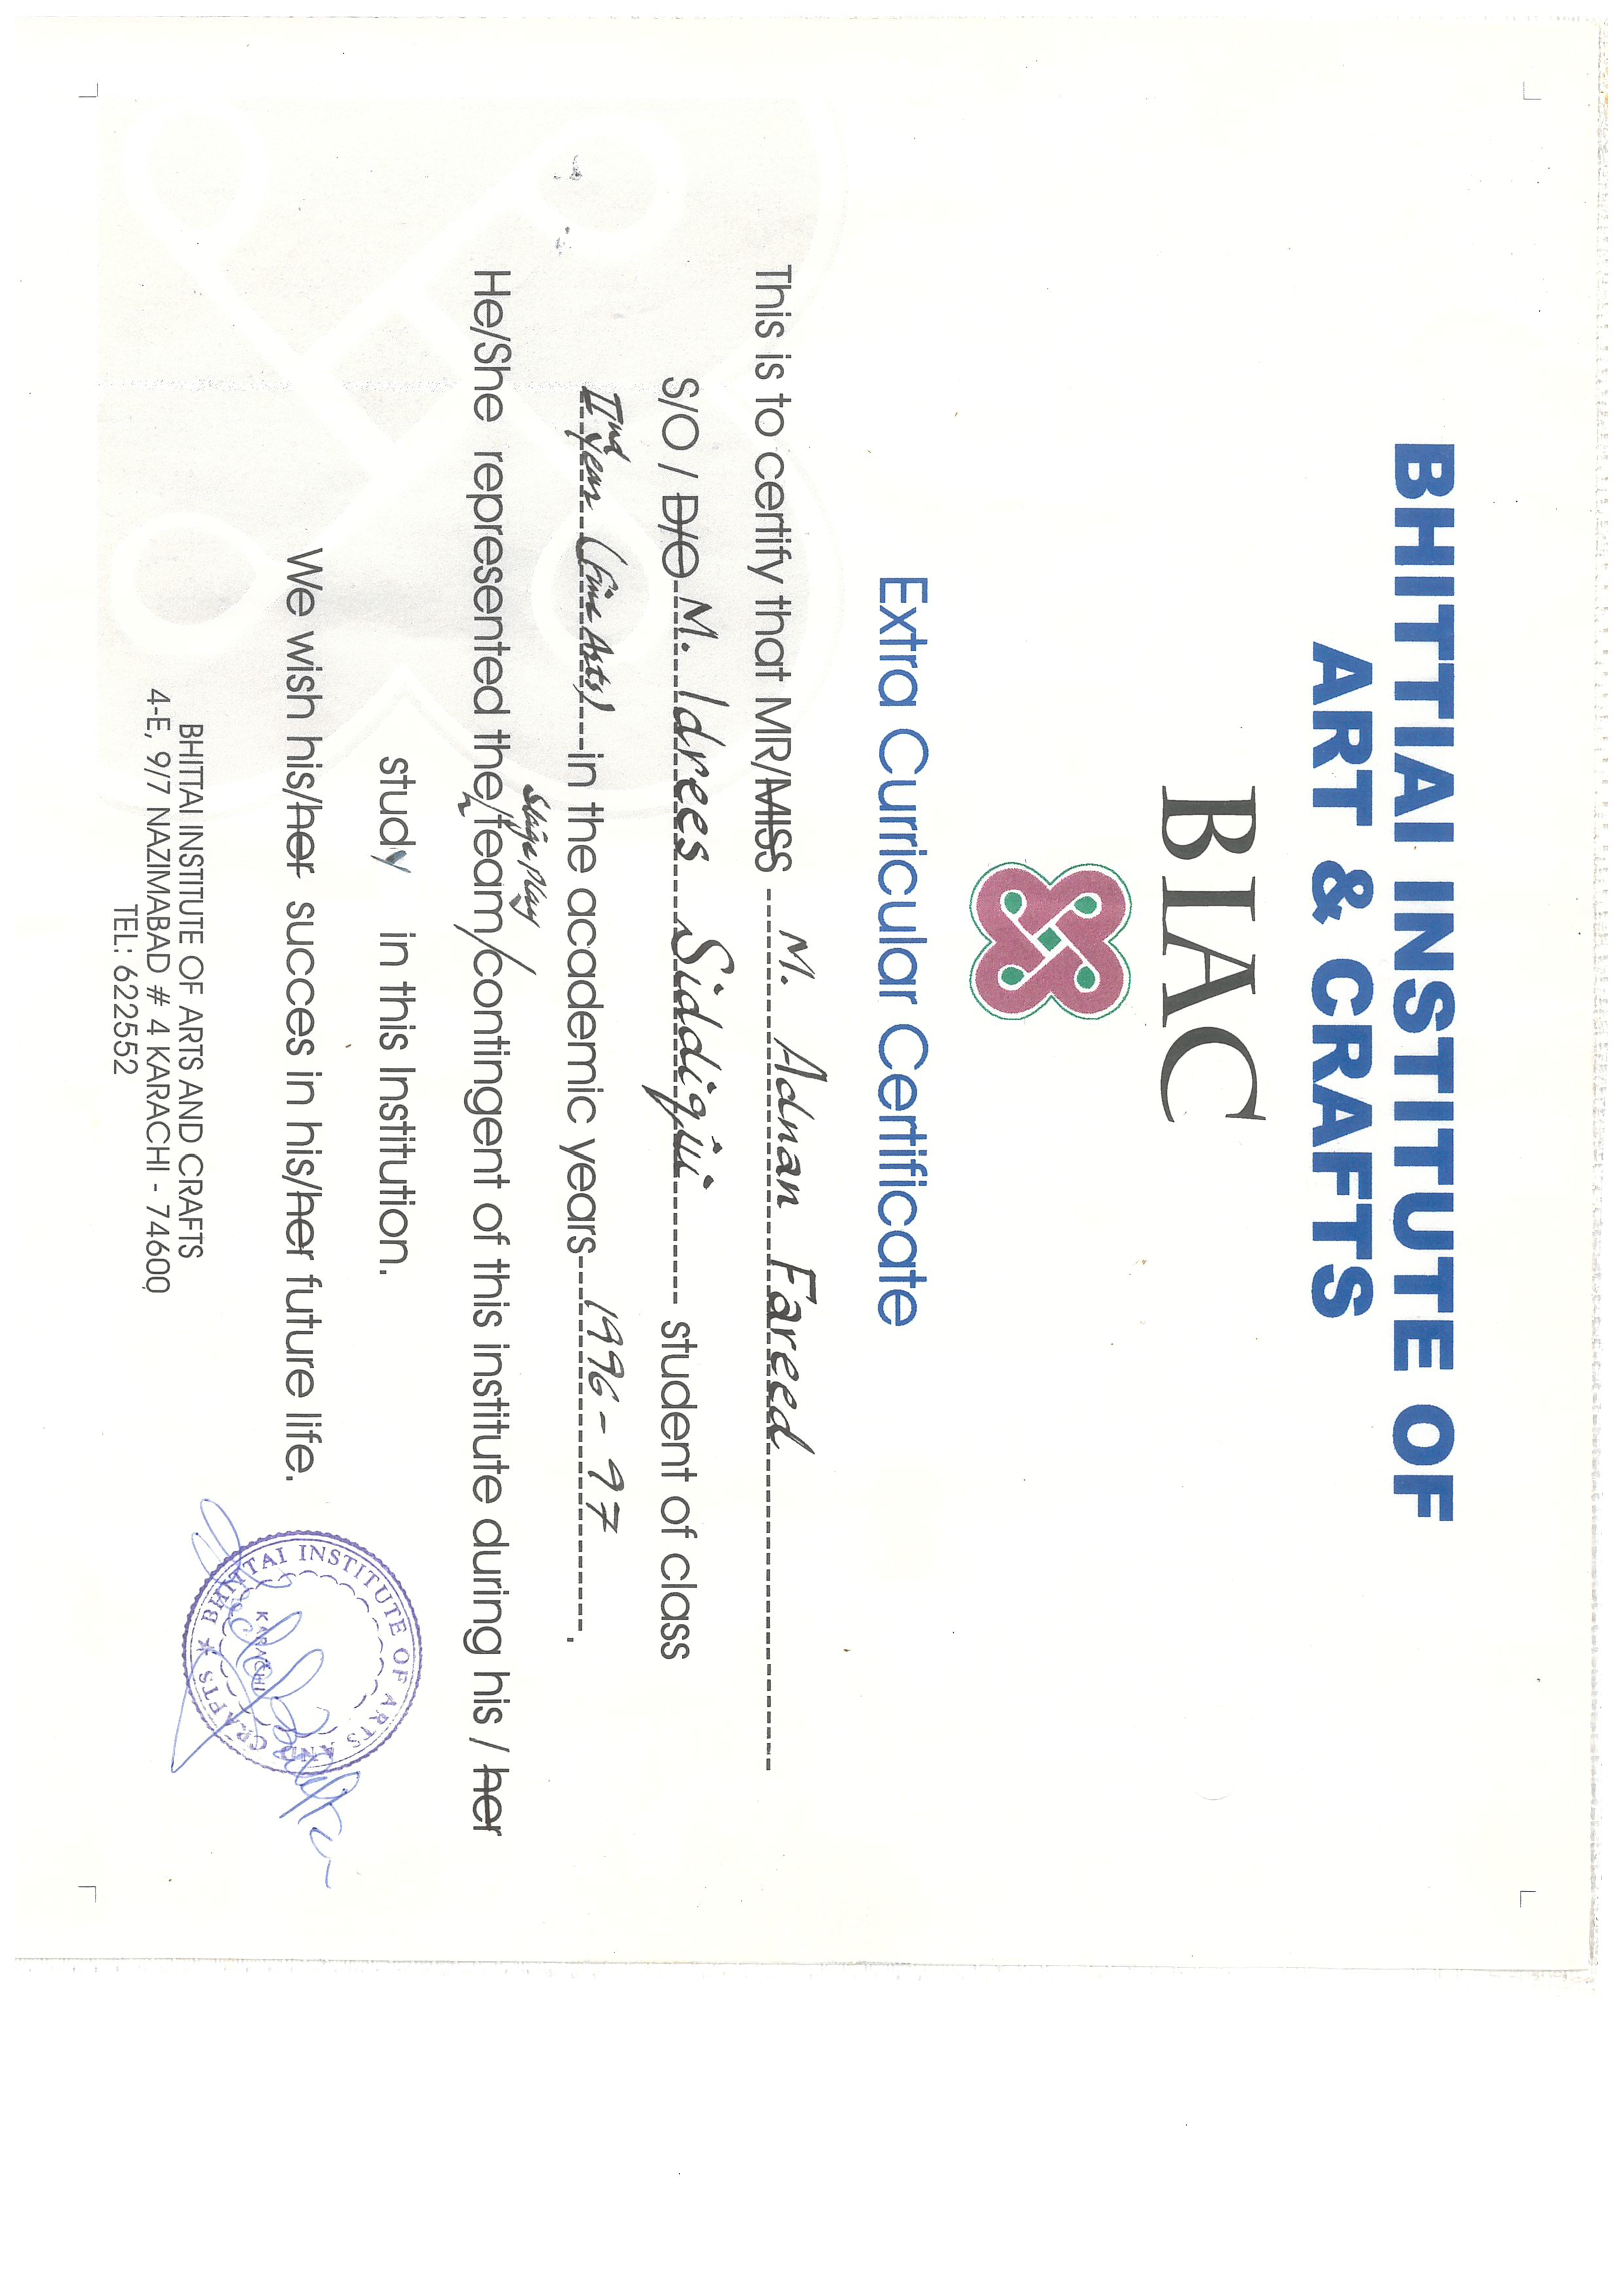 BHITTIAI INSTITUTE OF
ART & CRAFTS
BIAC
Extra Curricular Certificate
This is to certify that MR/MISS M. Adnan Fareed
S/O / D/O M. Idrees Siddiqui student of class
IInd Year (Fine Arts) in the academic years 1996-97.
stage play
He/She represented the/team/contingent of this institute during his / her
study in this Institution.
We wish his/her success in his/her future life.
BHITTAI INSTITUTE OF ARTS AND CRAFTS
4-E, 9/7 NAZIMABAD # 4 KARACHI - 74600
TEL: 622552
BHITTAI INSTITUTE OF ARTS AND CRAFTS
KARACHI